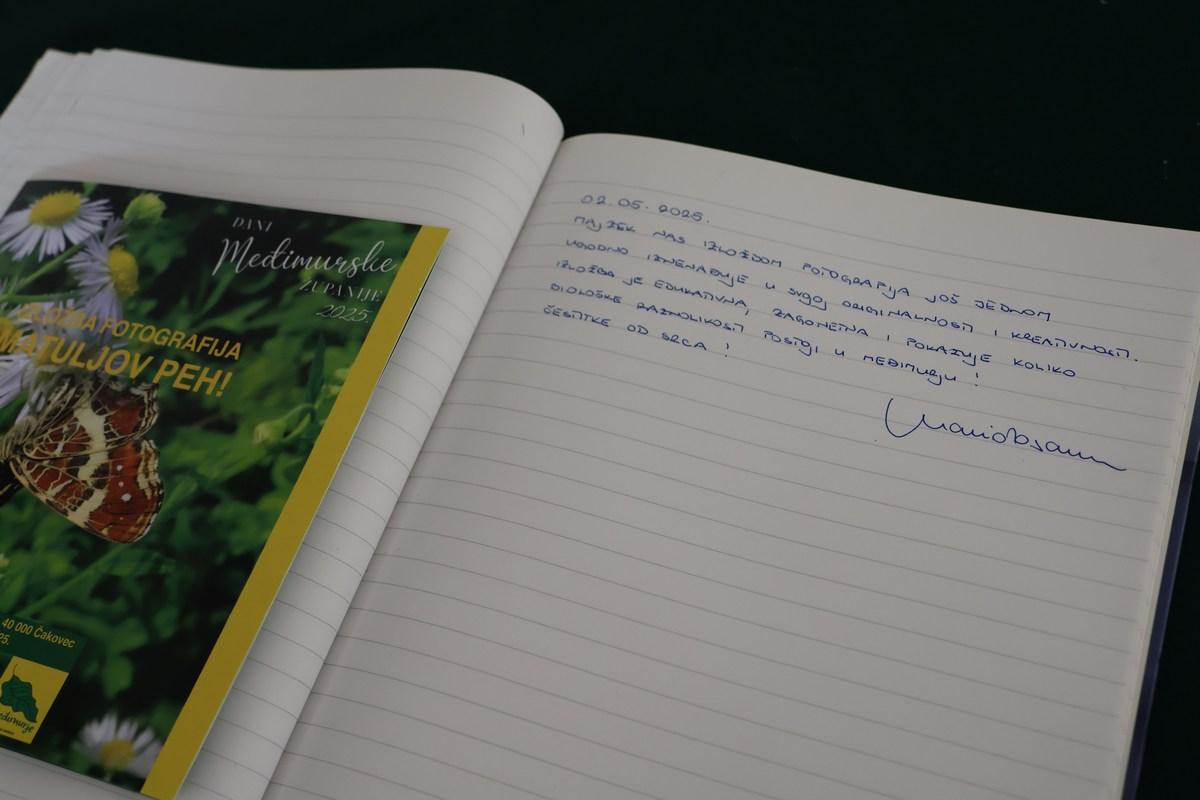 DANI
Međimurske
ŽUPANIJE
2025.
IZLOŽBA FOTOGRAFIJA
MATULJOV PEH!
40 000 Čakovec
02.05.2025.
NAS IZLOŽBOM FOTOGRAFIJA JOŠ JEDNOM
UGODNO IZNENAĐUJE U SVOJOJ ORIGINALNOSTI I KREATIVNOSTI.
IZLOŽBA JE EDUKATIVNA, ZAGONETNA I POKAZUJE KOLIKO
BIOLOŠKE RAZNOLIKOSTI POSTOJI U MEĐIMURJU!
ČESTITKE OD SRCA!